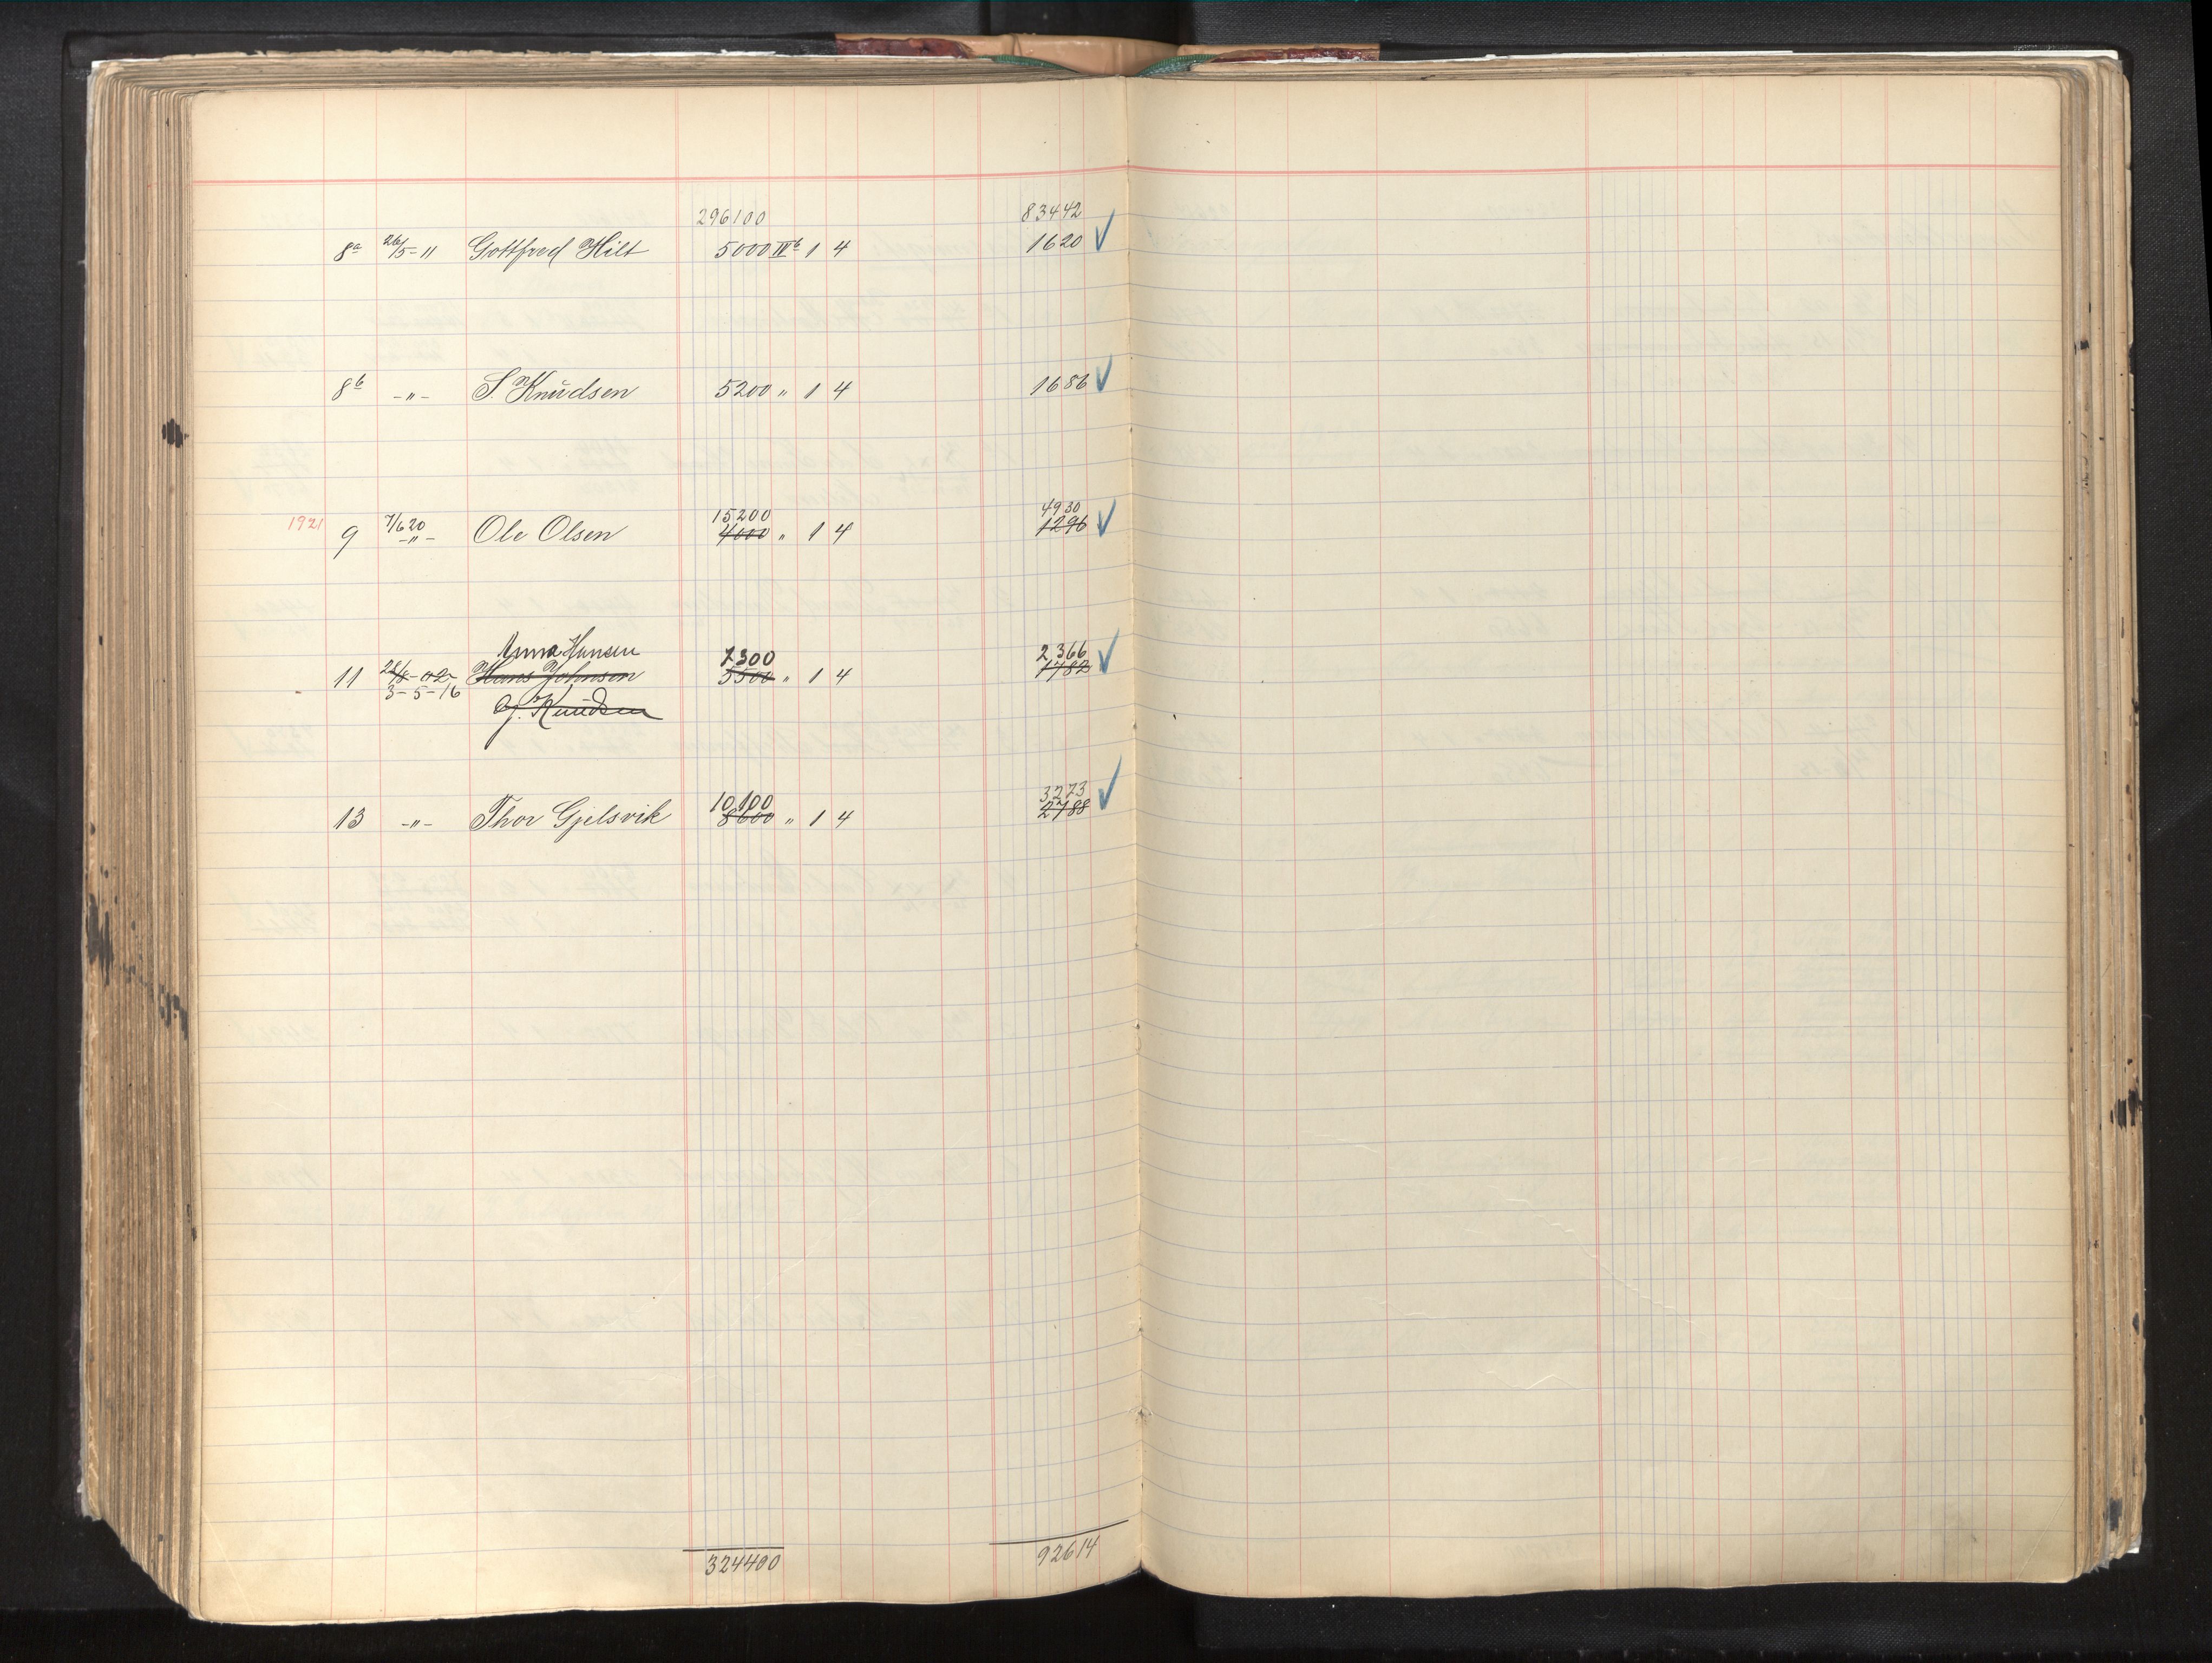 296100 83442
8a 26/5-11 Gottfred Hilt 5000 IIb 1 4 1620 ✓
8b -"- S. Knudsen 5200 " 1 4 1686 ✓
15200 4930
1921 9 7/6 20 -"- Ole Olsen 4000 " 1 4 1296 ✓
Anna Hansen 7300 2366
11 28/8-02 Hans Johnsen 5500 " 1 4 1782 ✓
3-5-16 Knudsen
10100 3273
13 -"- Thor Gjelsvik 8600 " 1 4 2788 ✓
324400 92614